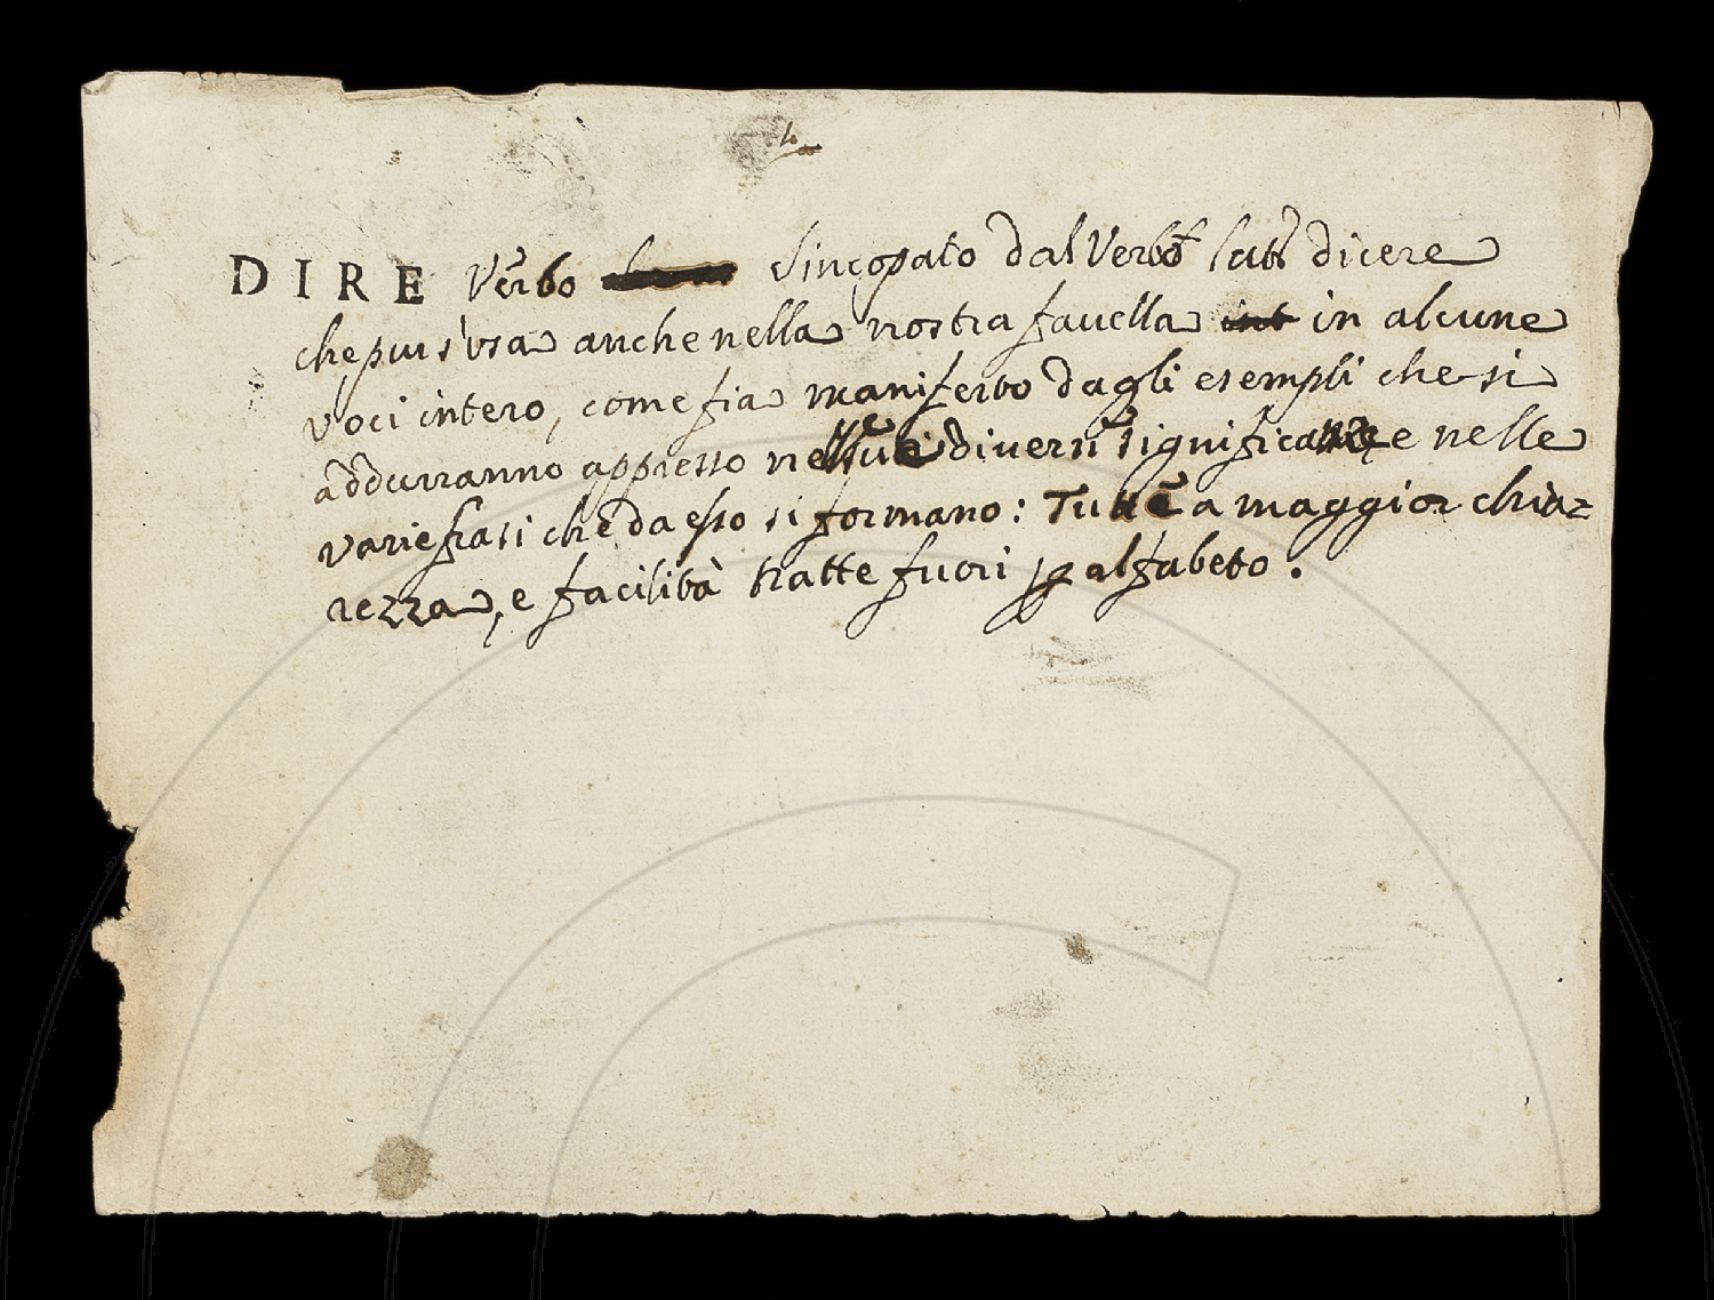 DIRE Verbo Sincopato dal Verbo lat. dicere
che pur s'usa anche nella nostra favella in alcune
voci intero, come fia manifesto dagli esempli che si
addurranno appresso nelle sue diversi significanze e nelle
varie frasi che da esso si formano: Tutte a maggior chia=
rezza, e facilità tratte fuori p alfabeto.